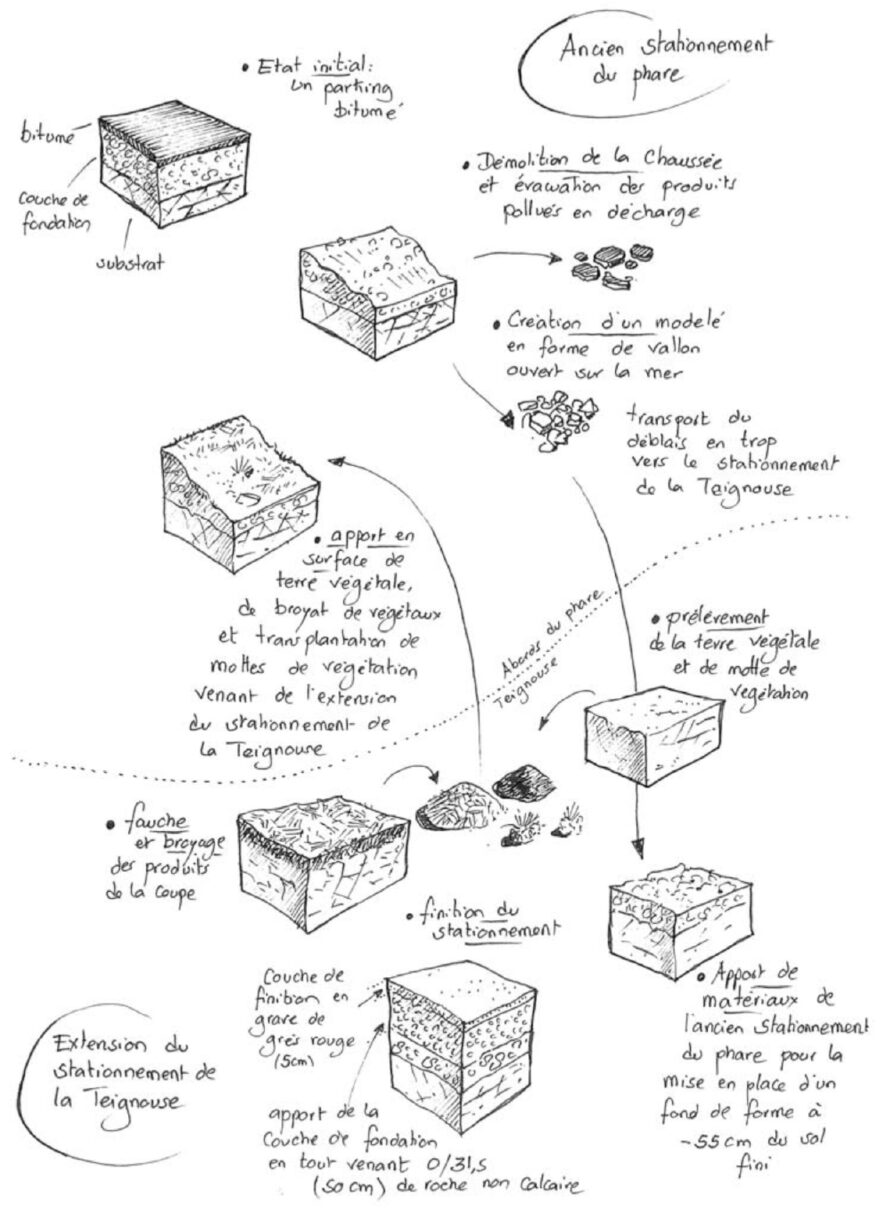 Ancien stationnement
du phare
• Etat initial:
un parking
bitumé
bitume
couche de
fondation
substrat
• Démolition de la chaussée
et évacuation des produits
pollués en décharge
• Création d'un modelé
en forme de vallon
ouvert sur la mer
transport du
déblais en trop
vers le stationnement
de la Teignouse
• apport en
surface de
terre végétale,
de broyat de végétaux
et transplantation de
mottes de végétation
venant de l'extension
du stationnement de
la Teignouse
Abords du phare
Teignouse
• prélèvement
de la terre végétale
et de motte de
végétation
• fauche
et broyage
des produits
de la coupe
• finition du
stationnement
Couche de
finition en
grave de
grès rouge
(5cm)
apport de la
couche de fondation
en tout venant 0/31,5
(50 cm) de roche non calcaire
• Apport de
matériaux de
l'ancien stationnement
du phare pour la
mise en place d'un
fond de forme à
-55cm du sol
fini
Extension du
stationnement de
la Teignouse